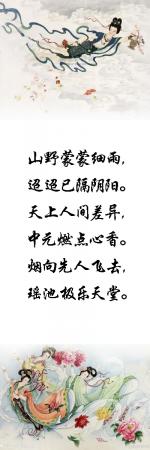 山野蒙蒙细雨，
迢迢已隔阴阳。
天上人间差异，
中元燃点心香。
烟向先人飞去，
瑶池极乐天堂。